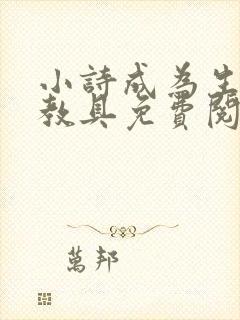 小詩成為生
教具免費閱
萬邦